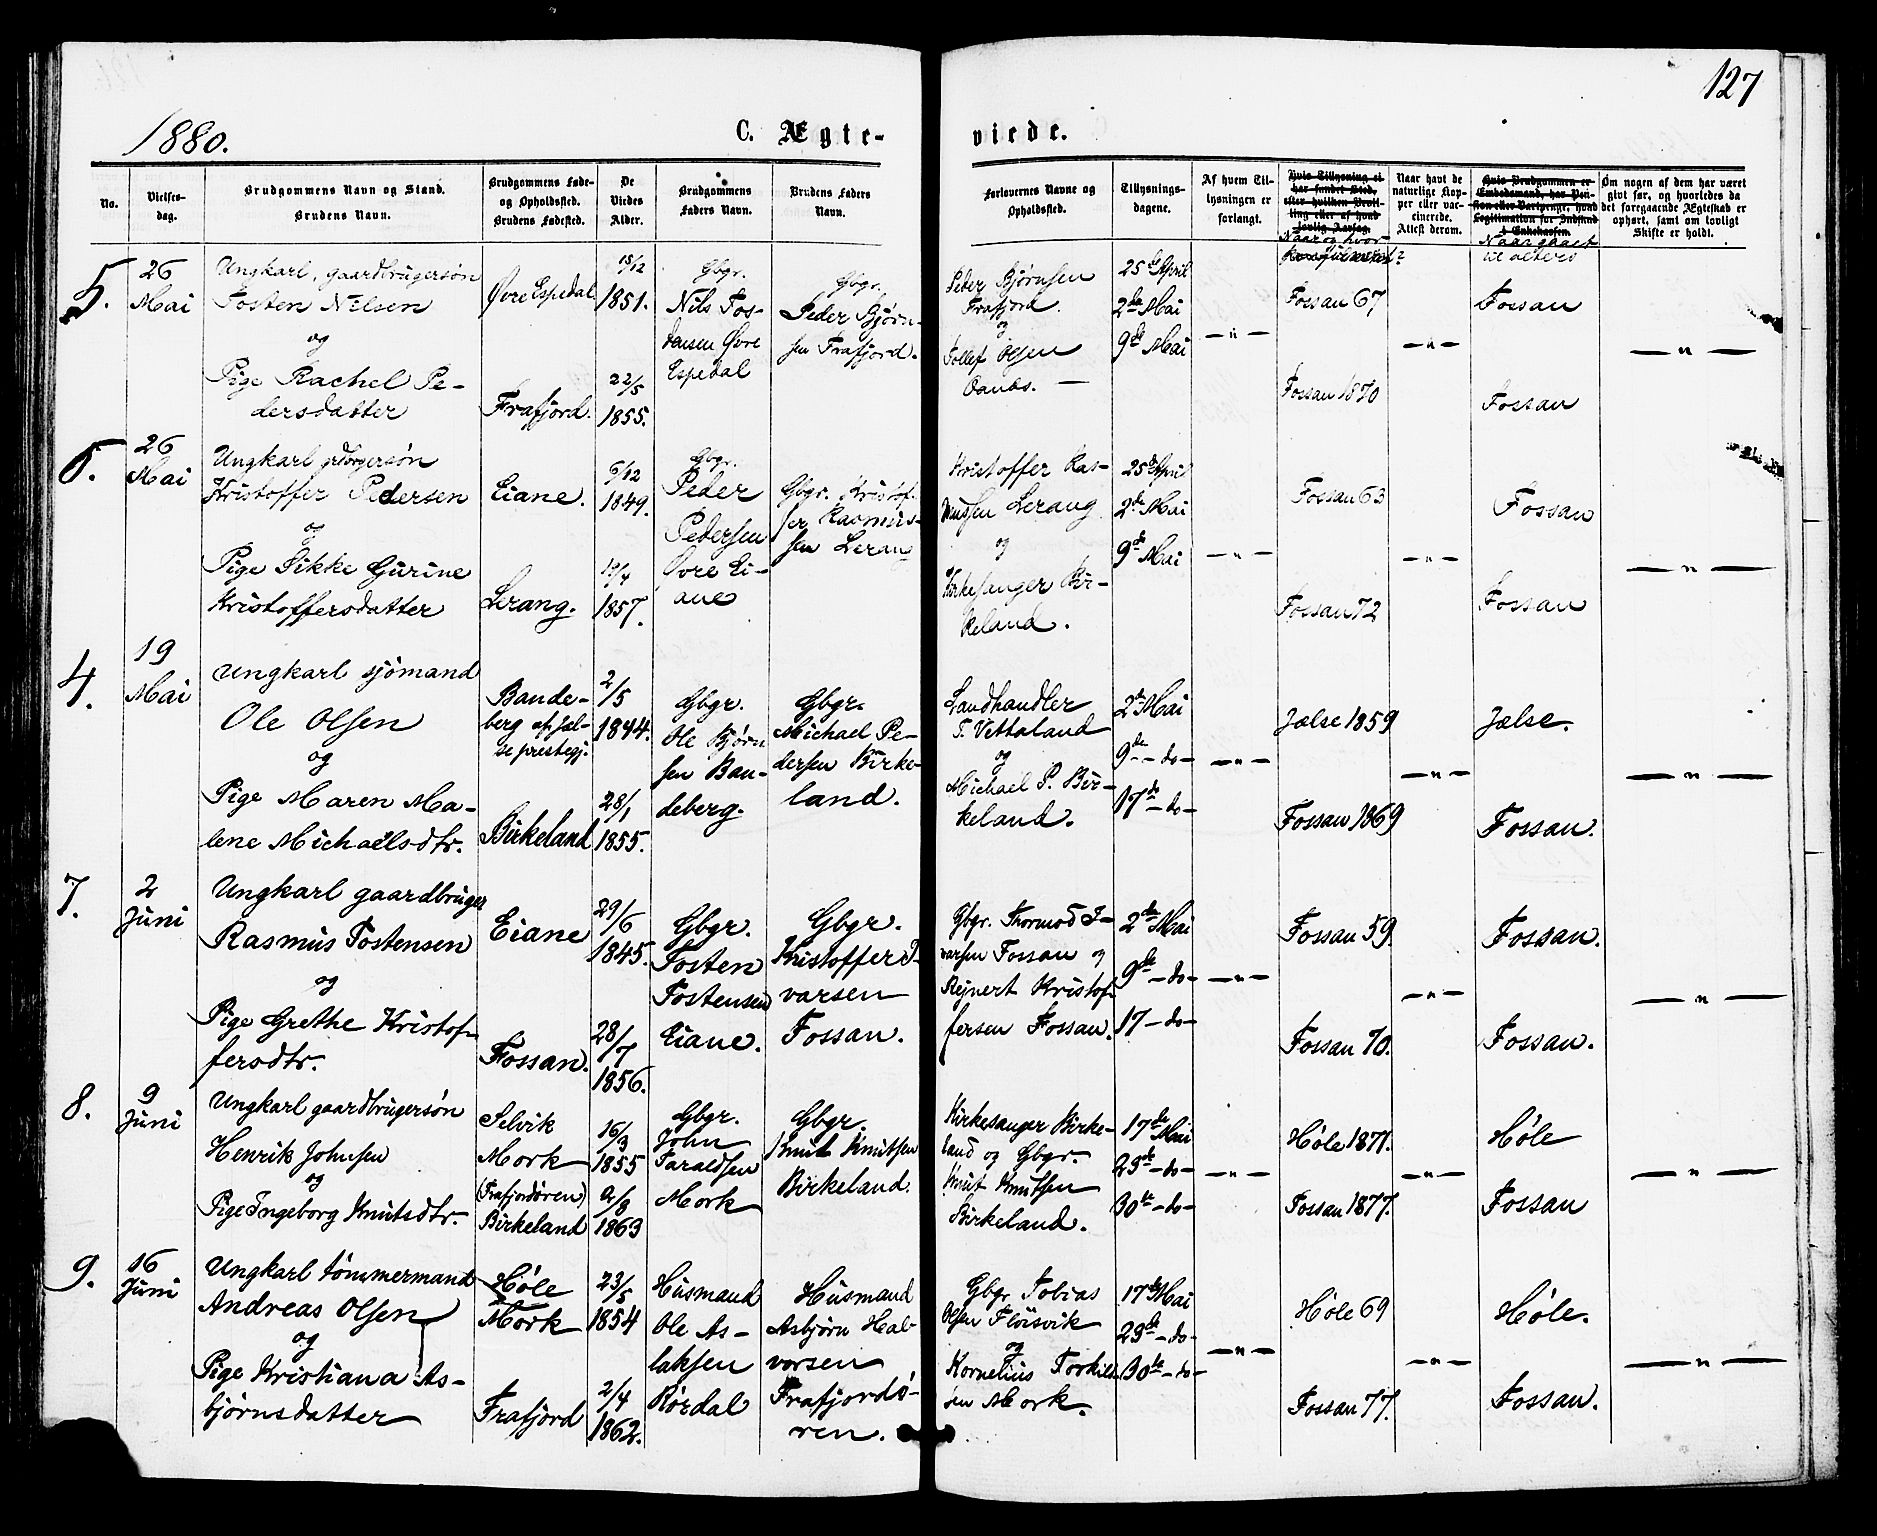 127
1880.
C. Ægte-
viede.
No.
Vielses-
dag.
Brudgommens Navn og Stand.
Brudens Navn.
Brudgommens Føde-
og Opholdssted.
Brudens Fødested.
De
Viedes
Alder.
Brudgommens
Faders Navn.
Brudens Faders
Navn.
Forlovernes Navne og
Opholdssted.
Tillysnings-
dagene.
Af hvem Til-
lysningen er
forlangt.
Hvis Tillysning ei
har fundet Sted,
efter hvilken Bevil-
ling eller af hvad
lovlig Aarsag.
Naar og hvor
Naar havt de
naturlige Kop-
per eller vac-
cinerede.
Attest derom.
Hvis Brudgommen er
Embedsmand, har Pen-
sion eller Vartpenge, hvad
Legitimation for Indskud
i Enkekassen.
Naar gaaet
til alters
Om nogen af dem har været
givt før, og hvorledes da
det foregaaende Ægteskab er
ophørt, samt om lovligt
Skifte er holdt.
5.
26
Mai
Ungkarl, gaardbrugersøn
Tosten Nilsen
og
Pige Rachel Pe-
dersdatter
Øvre Espedal
Frafjord.
18/12
1851.
22/5
1855.
Gbgr.
Nils Tos-
densen Øvre
Espedal
Gbgr.
Peder Bjørn-
sen Frafjord.
Peder Bjørnsen
Frafjord.
og
Tollef Olsen
25de April
2den Mai
9de Mai
— " —
Fossan 67
Fossan 1870
— " —
Fossan
Fossan
— " —
6.
26
Mai
Ungkarl
Kristoffer Pedersen
og
Pige Sikke Gurine
Kristoffersdatter
Eiane.
Lerang.
6/12
1849.
19/4
1857.
Gbgr.
Peder
Pedersen
Øvre Ei-
ane
Gbgr. Kristof-
fer Rasmus-
sen Lerang
Kristoffer Ras-
mussen Lerang
og
Kirkesanger Bir-
keland.
25de April
2de Mai
9de Mai
— " —
Fossan 63
Fossan 72
— " —
Fossan
Fossan
— " —
4.
19
Mai
Ungkarl sjømand
Ole Olsen
og
Pige Maren Ma-
lene Michaelsdtr.
Bande-
berg af Jæl-
se prestegj.
Birkeland
2/5
1844.
28/1
1855.
Gbgr.
Ole Bjørn
sen Ban-
deberg.
Gbgr.
Michael Pe-
dersen Birke-
land.
Landhandler
T. Vettaland
og
Michael P. Bir-
keland.
2de Mai
9de — do —
17de — do —
— " —
Jælse 1859
Fossan 1869
— " —
Jælse.
Fossan.
— " —
7.
2
Juni
Ungkarl gaardbruger
Rasmus Tostensen
og
Pige Grethe Kristof-
fersdtr.
Eiane
Fossan.
29/6
1845.
28/7
1856.
Gbgr.
Tosten
Tostensen
Eiane.
Gbgr.
Kristoffer I-
varsen
Fossan.
Gbgr. Thormod I-
varsen Fossan og
Rejnert Kristof-
fersen Fossan.
2de Mai
9de — do —
17 — do —
— " —
Fossan 59.
Fossan 70.
— " —
Fossan.
Fossan.
— " —
8.
9
Juni
Ungkarl gaardbrugersøn
Henrik Johnsen
og
Pige Ingeborg Knutsdtr.
Selvik
Mork
(Frafjordøren)
Birkeland
16/3
1855
2/8
1863
Gbgr.
John
Taraldsen
Mork
Gbgr.
Knut Knutsen
Birkeland.
Kirkesanger Birke-
land og Gbgr.
Knut Knutsen
Birkeland.
17de Mai
23de — do —
30te — do —
— " —
Høle 1871.
Fossan 1877.
— " —
Høle
Fossan
— " —
9.
16
Juni
Ungkarl tømmermand
Andreas Olsen
og
Pige Kristiana As-
bjørnsdatter
Høle
Mork
Frafjord
23/5
1854
2/4
1862.
Husmand
Ole As-
laksen
Rørdal
Husmand
Asbjørn Hal-
vorsen
Frafjordø-
ren.
Gbgr Tobias
Olsen Fløisvik
og
Kornelius Torkild-
sen Mork.
17de Mai
23de — do —
30te — do
— " —
Høle 69
Fossan 77.
— " —
Høle.
Fossan.
— " —